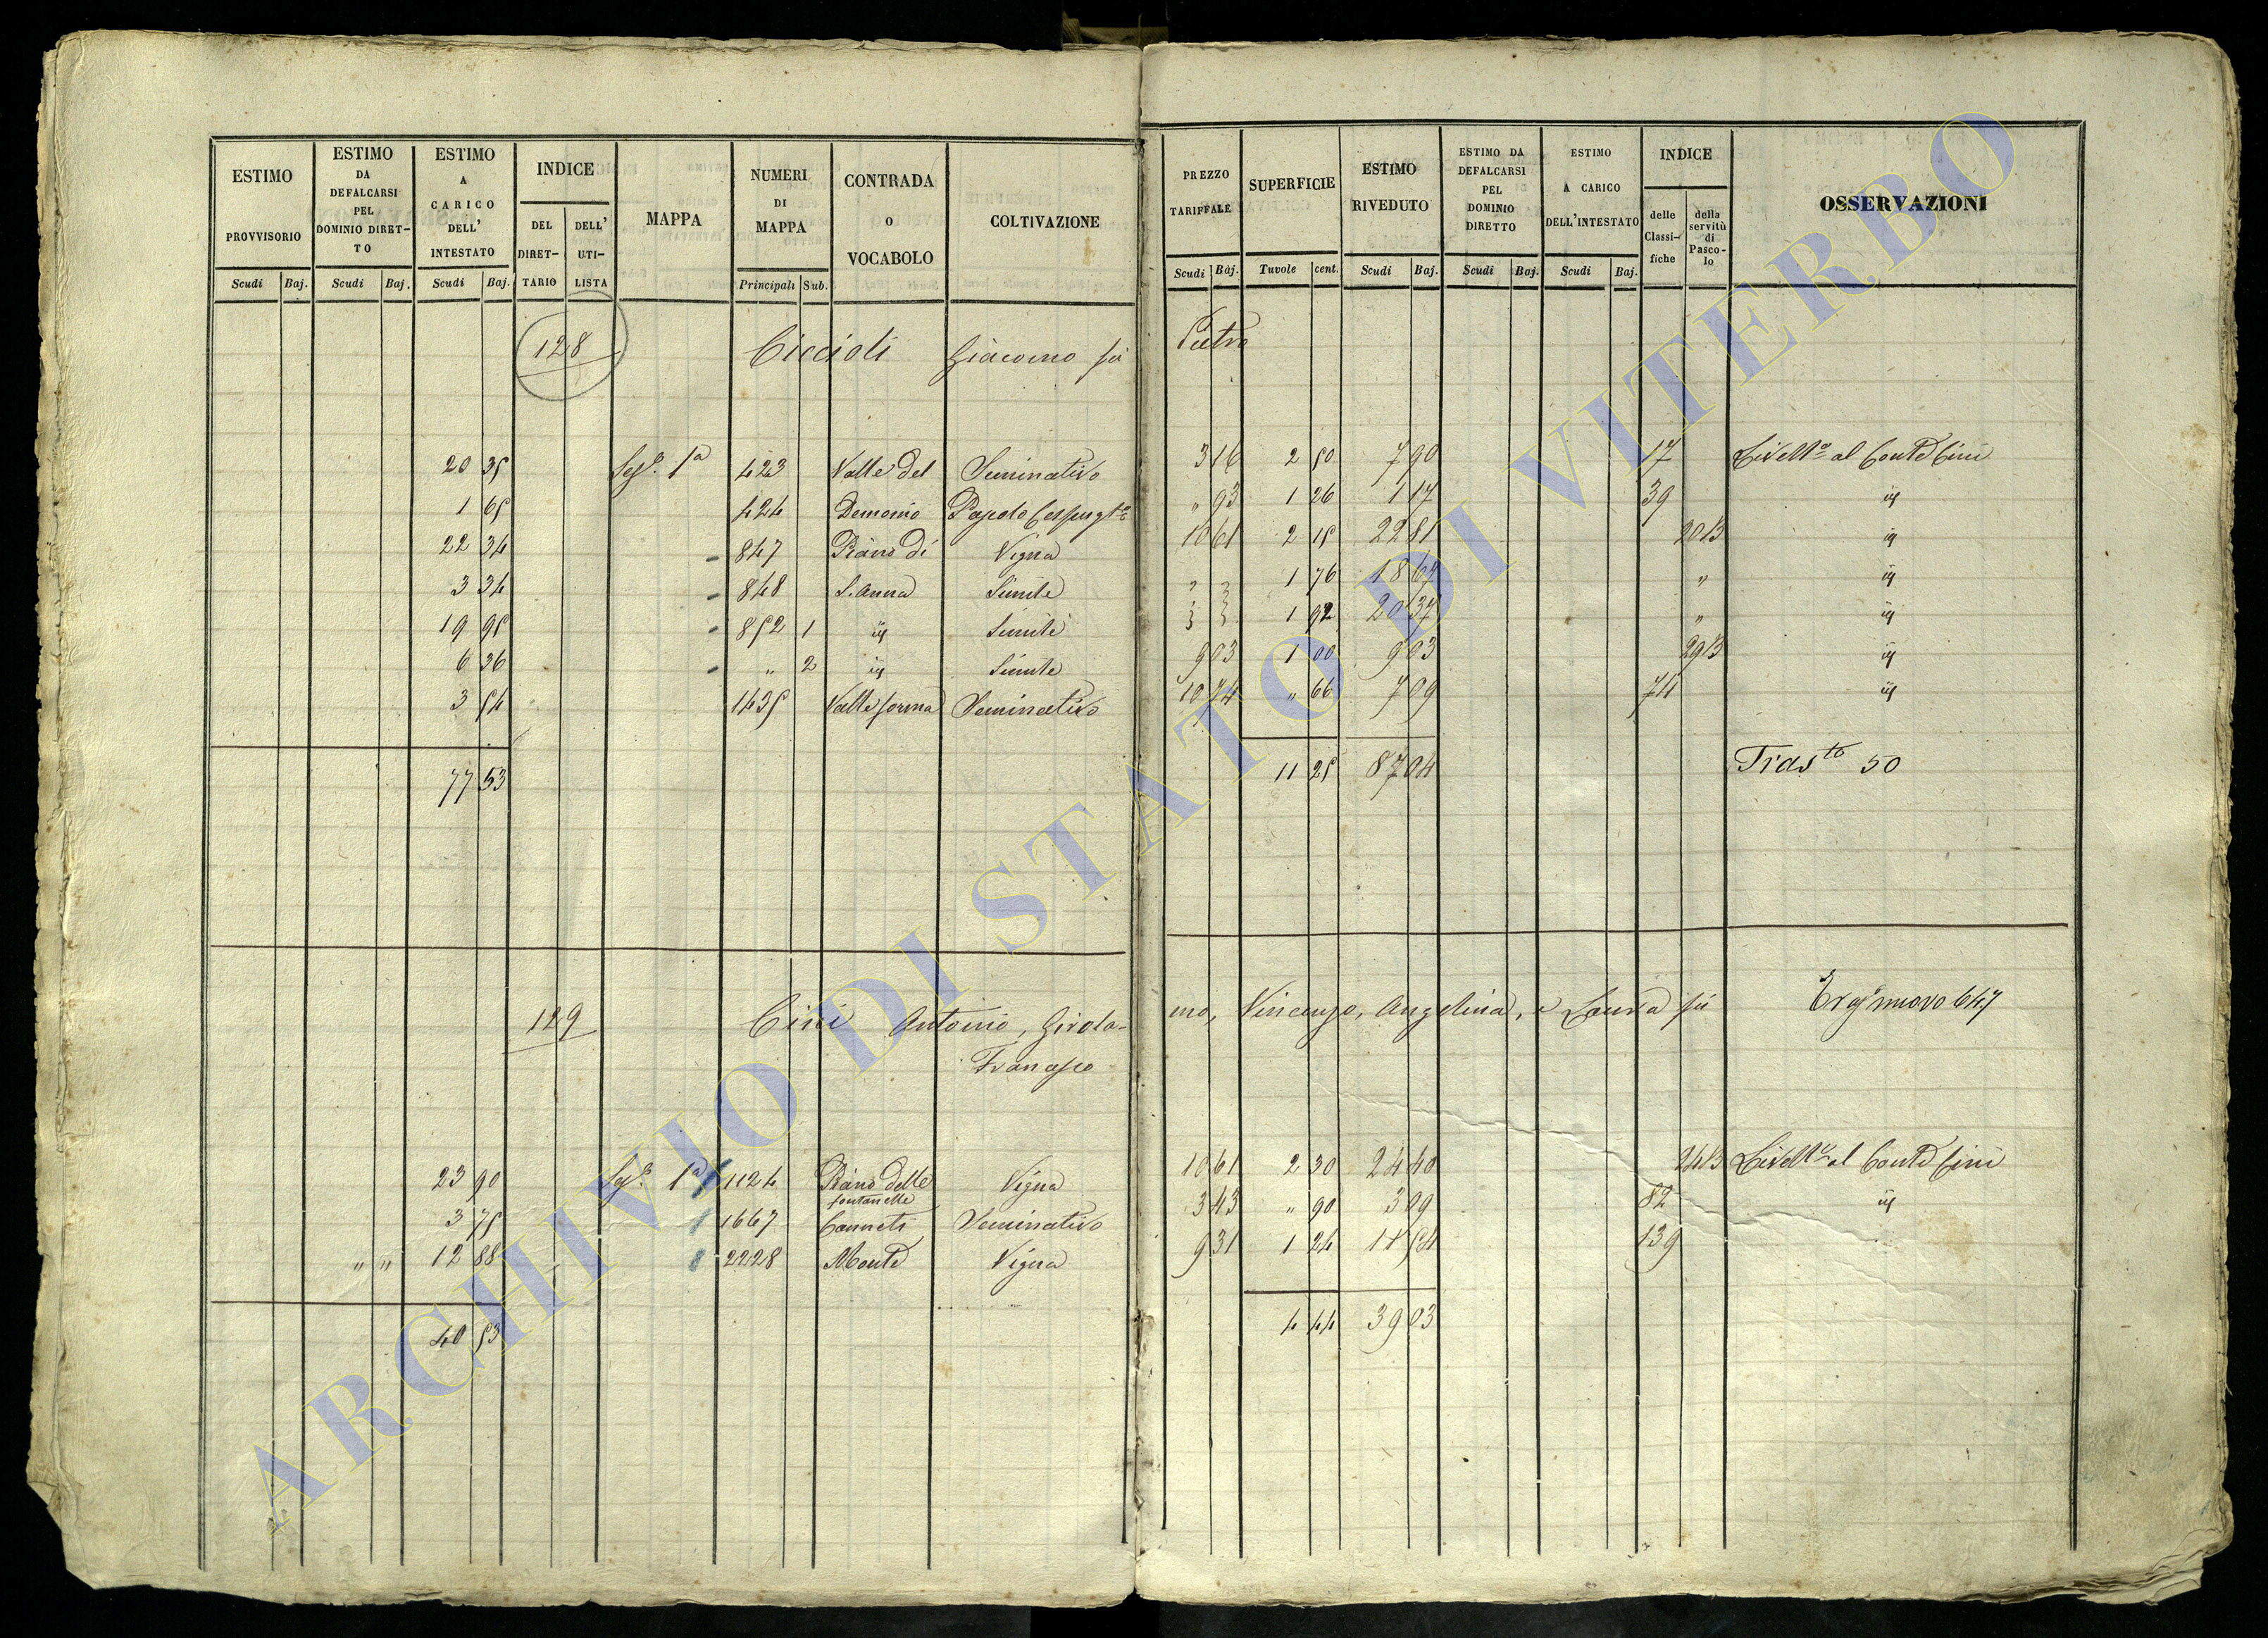 ESTIMO PROVVISORIO Scudi Baj.
ESTIMO DA DEFALCARSI PEL DOMINIO DIRET-TO Scudi Baj.
ESTIMO A CARICO DELL' INTESTATO Scudi Baj.
INDICE DEL DIRET-TARIO DELL' UTI-LISTA
MAPPA
NUMERI DI MAPPA Principali Sub.
CONTRADA O VOCABOLO
COLTIVAZIONE
PREZZO TARIFFALE Scudi Baj.
SUPERFICIE Tavole cent.
ESTIMO RIVEDUTO Scudi Baj.
ESTIMO DA DEFALCARSI PEL DOMINIO DIRETTO Scudi Baj.
ESTIMO A CARICO DELL'INTESTATO Scudi Baj.
INDICE delle Classi-fiche della servitù di Pasco-lo
OSSERVAZIONI
128 Ciccioli Giacomo fu Pietro
20 35 Sez.e 1a 423 Valle del Seminativo 3 16 2 50 7 90 17 Livell.o al Conte Cini
1 65 424 Demonio Pascolo Cespugt.o " 93 1 26 1 17 39 id
22 34 847 Piano di Vigna 10 61 2 15 22 81 20 13 id
3 34 848 S. Anna Simile " " 1 76 18 67 " id
19 95 852 1 id Simile " " 1 92 20 37 " id
6 36 " 2 id Simile 9 03 1 00 9 03 29 13 id
3 54 1435 Valle forma Seminativo 10 74 " 66 7 09 74 id
77 53 11 25 87 04 Tras.to 50
129 Cini Antonio, Girola-mo, Vincenzo, Angelina, e Laura fu Francesco nuovo 647
23 90 Sez.e 1a 1124 Piano delle fontanelle Vigna 10 61 2 30 24 40 24 13 Livell.o al Conte Cini
3 75 1667 Canneti Seminativo 3 43 " 90 3 09 82 id
" " 12 88 2228 Monte Vigna 9 31 1 24 11 54 139
40 53 4 44 39 03
ARCHIVIO DI STATO DI VITERBO